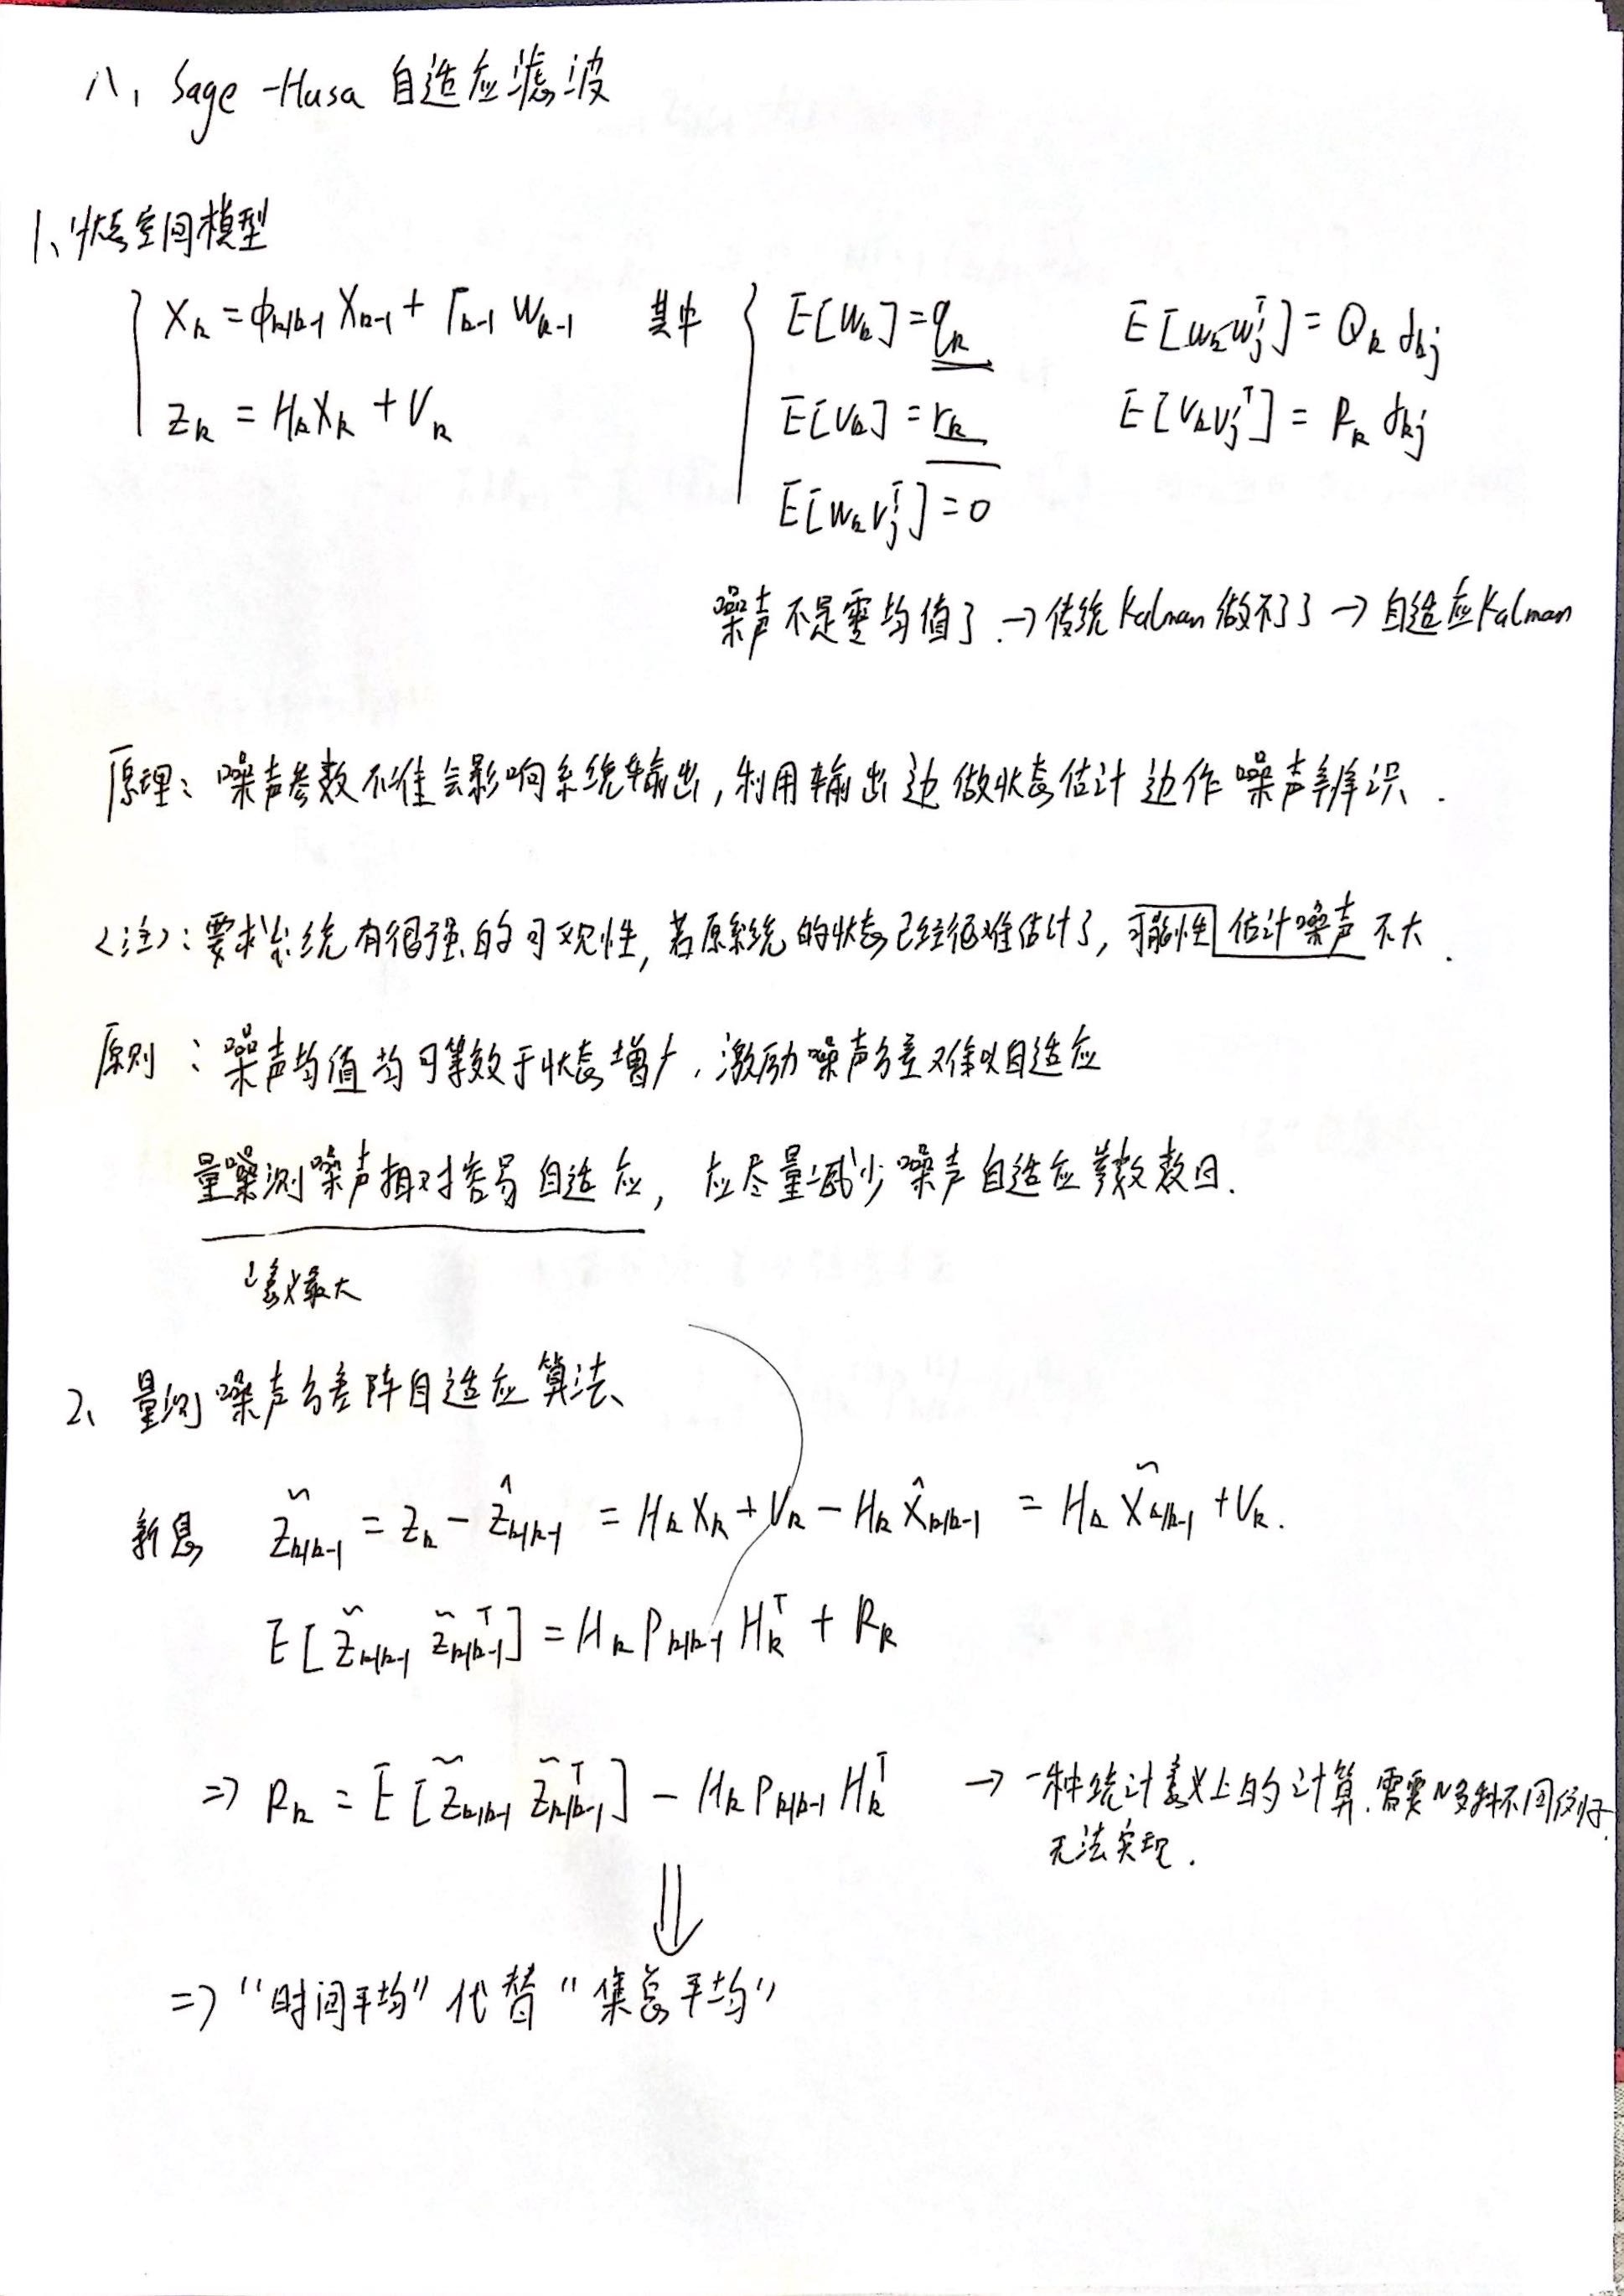 八、Sage-Husa 自适应滤波
1、状态空间模型
{ X_k = φ_{k|k-1} X_{k-1} + Γ_{k-1} W_{k-1} 其中 { E[W_k] = q_k E[W_k W_j^T] = Q_k δ_{kj}
Z_k = H_k X_k + V_k E[V_k] = r_k E[V_k V_j^T] = R_k δ_{kj}
E[W_k V_j^T] = 0
噪声不是零均值了.→传统Kalman做不了了→自适应Kalman
原理：噪声参数不准会影响系统输出,利用输出边做状态估计边作噪声辨识.
<注>：要求系统有很强的可观性,若原系统的状态已经很难估计了,可能性估计噪声不大.
原则：噪声均值均可等效于状态增广,激励噪声方差难以自适应
量测噪声相对容易自适应, 应尽量减少噪声自适应参数数目.
↓意义最大
2、量测噪声方差阵自适应算法
新息 Z̃_{k|k-1} = Z_k - Ẑ_{k|k-1} = H_k X_k + V_k - H_k X̂_{k|k-1} = H_k X̃_{k|k-1} + V_k.
E[Z̃_{k|k-1} Z̃_{k|k-1}^T] = H_k P_{k|k-1} H_k^T + R_k
⇒ R_k = E[Z̃_{k|k-1} Z̃_{k|k-1}^T] - H_k P_{k|k-1} H_k^T → 一种统计意义上的计算.需要N多种不同
无法实现.
⇓
⇒ "时间平均" 代替 "集总平均"